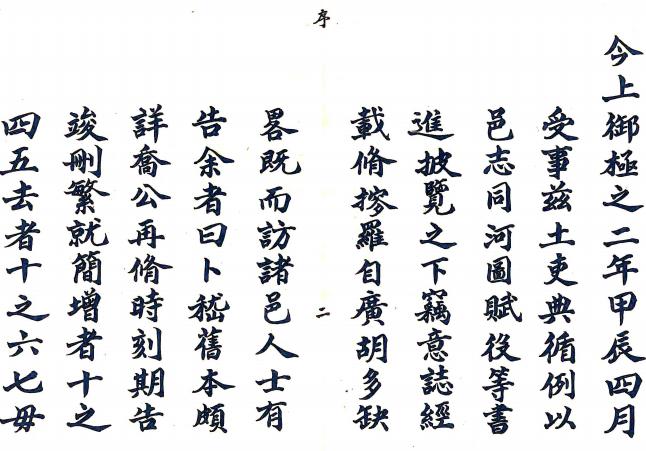 序
今上御極之二年甲辰四月
受事茲土吏典循例以
邑志同河圖賦役等書
進披覽之下竊意誌經
載脩搜羅自廣胡多缺
二
畧既而訪諸邑人士有
告余者曰卜嵇舊本頗
詳喬公再脩時刻期告
竣刪繁就簡增者十之
四五去者十之六七毋